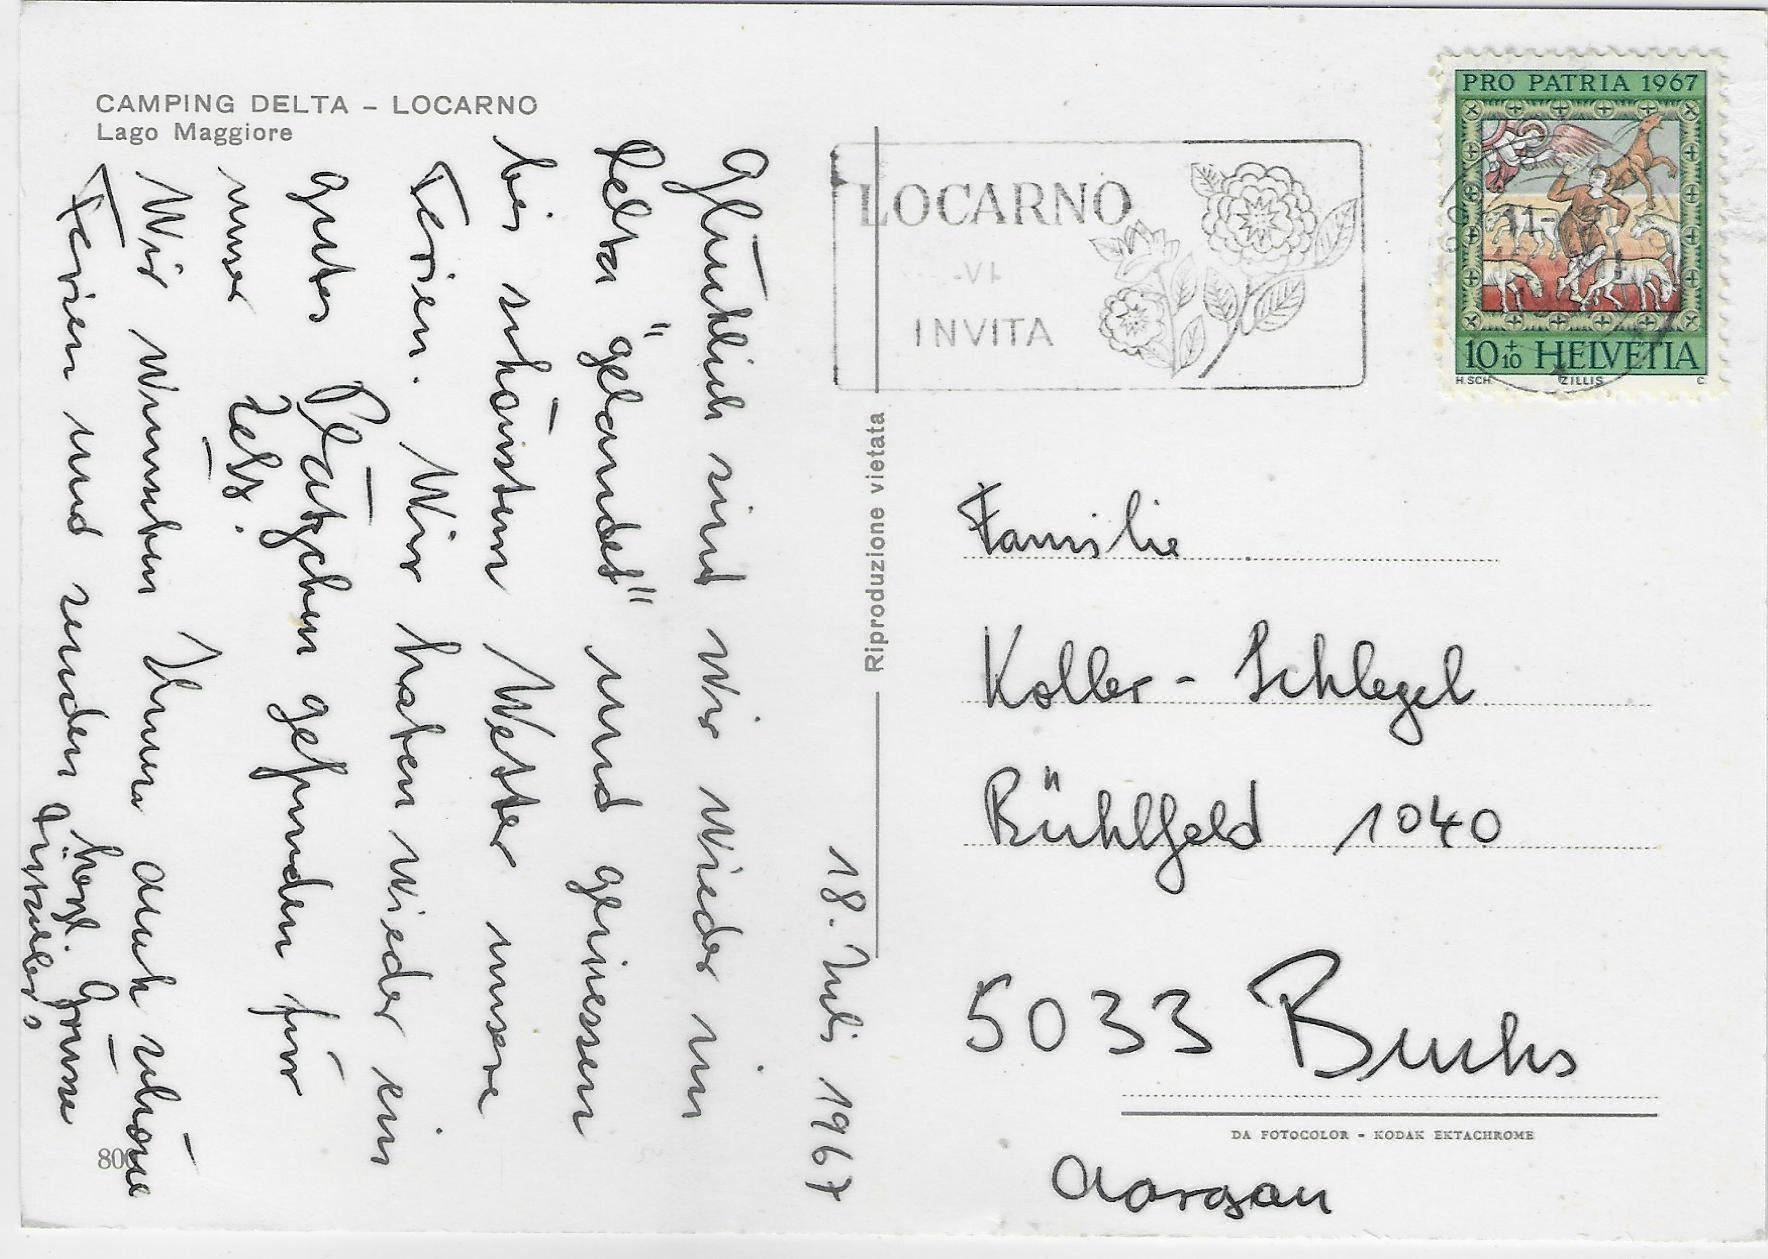 CAMPING DELTA – LOCARNO
Lago Maggiore
18. Juli 1967
Glücklich sind wir wieder im
Delta "gelandet" und geniessen
bei schönstem Wetter unsere
Ferien. Wir haben wieder ein
gutes Plätzchen gefunden für
unser Zelt.
Wir wünschen Ihnen auch schöne
Ferien und senden herzl. Grüsse
800
Riproduzione vietata
LOCARNO
VI
INVITA
PRO PATRIA 1967
10+10 HELVETIA
H.SCH. ZILLIS C
Familie
Koller - Schlegel
Bühlfeld 1040
5033 Buchs
DA FOTOCOLOR - KODAK EKTACHROME
Aargau